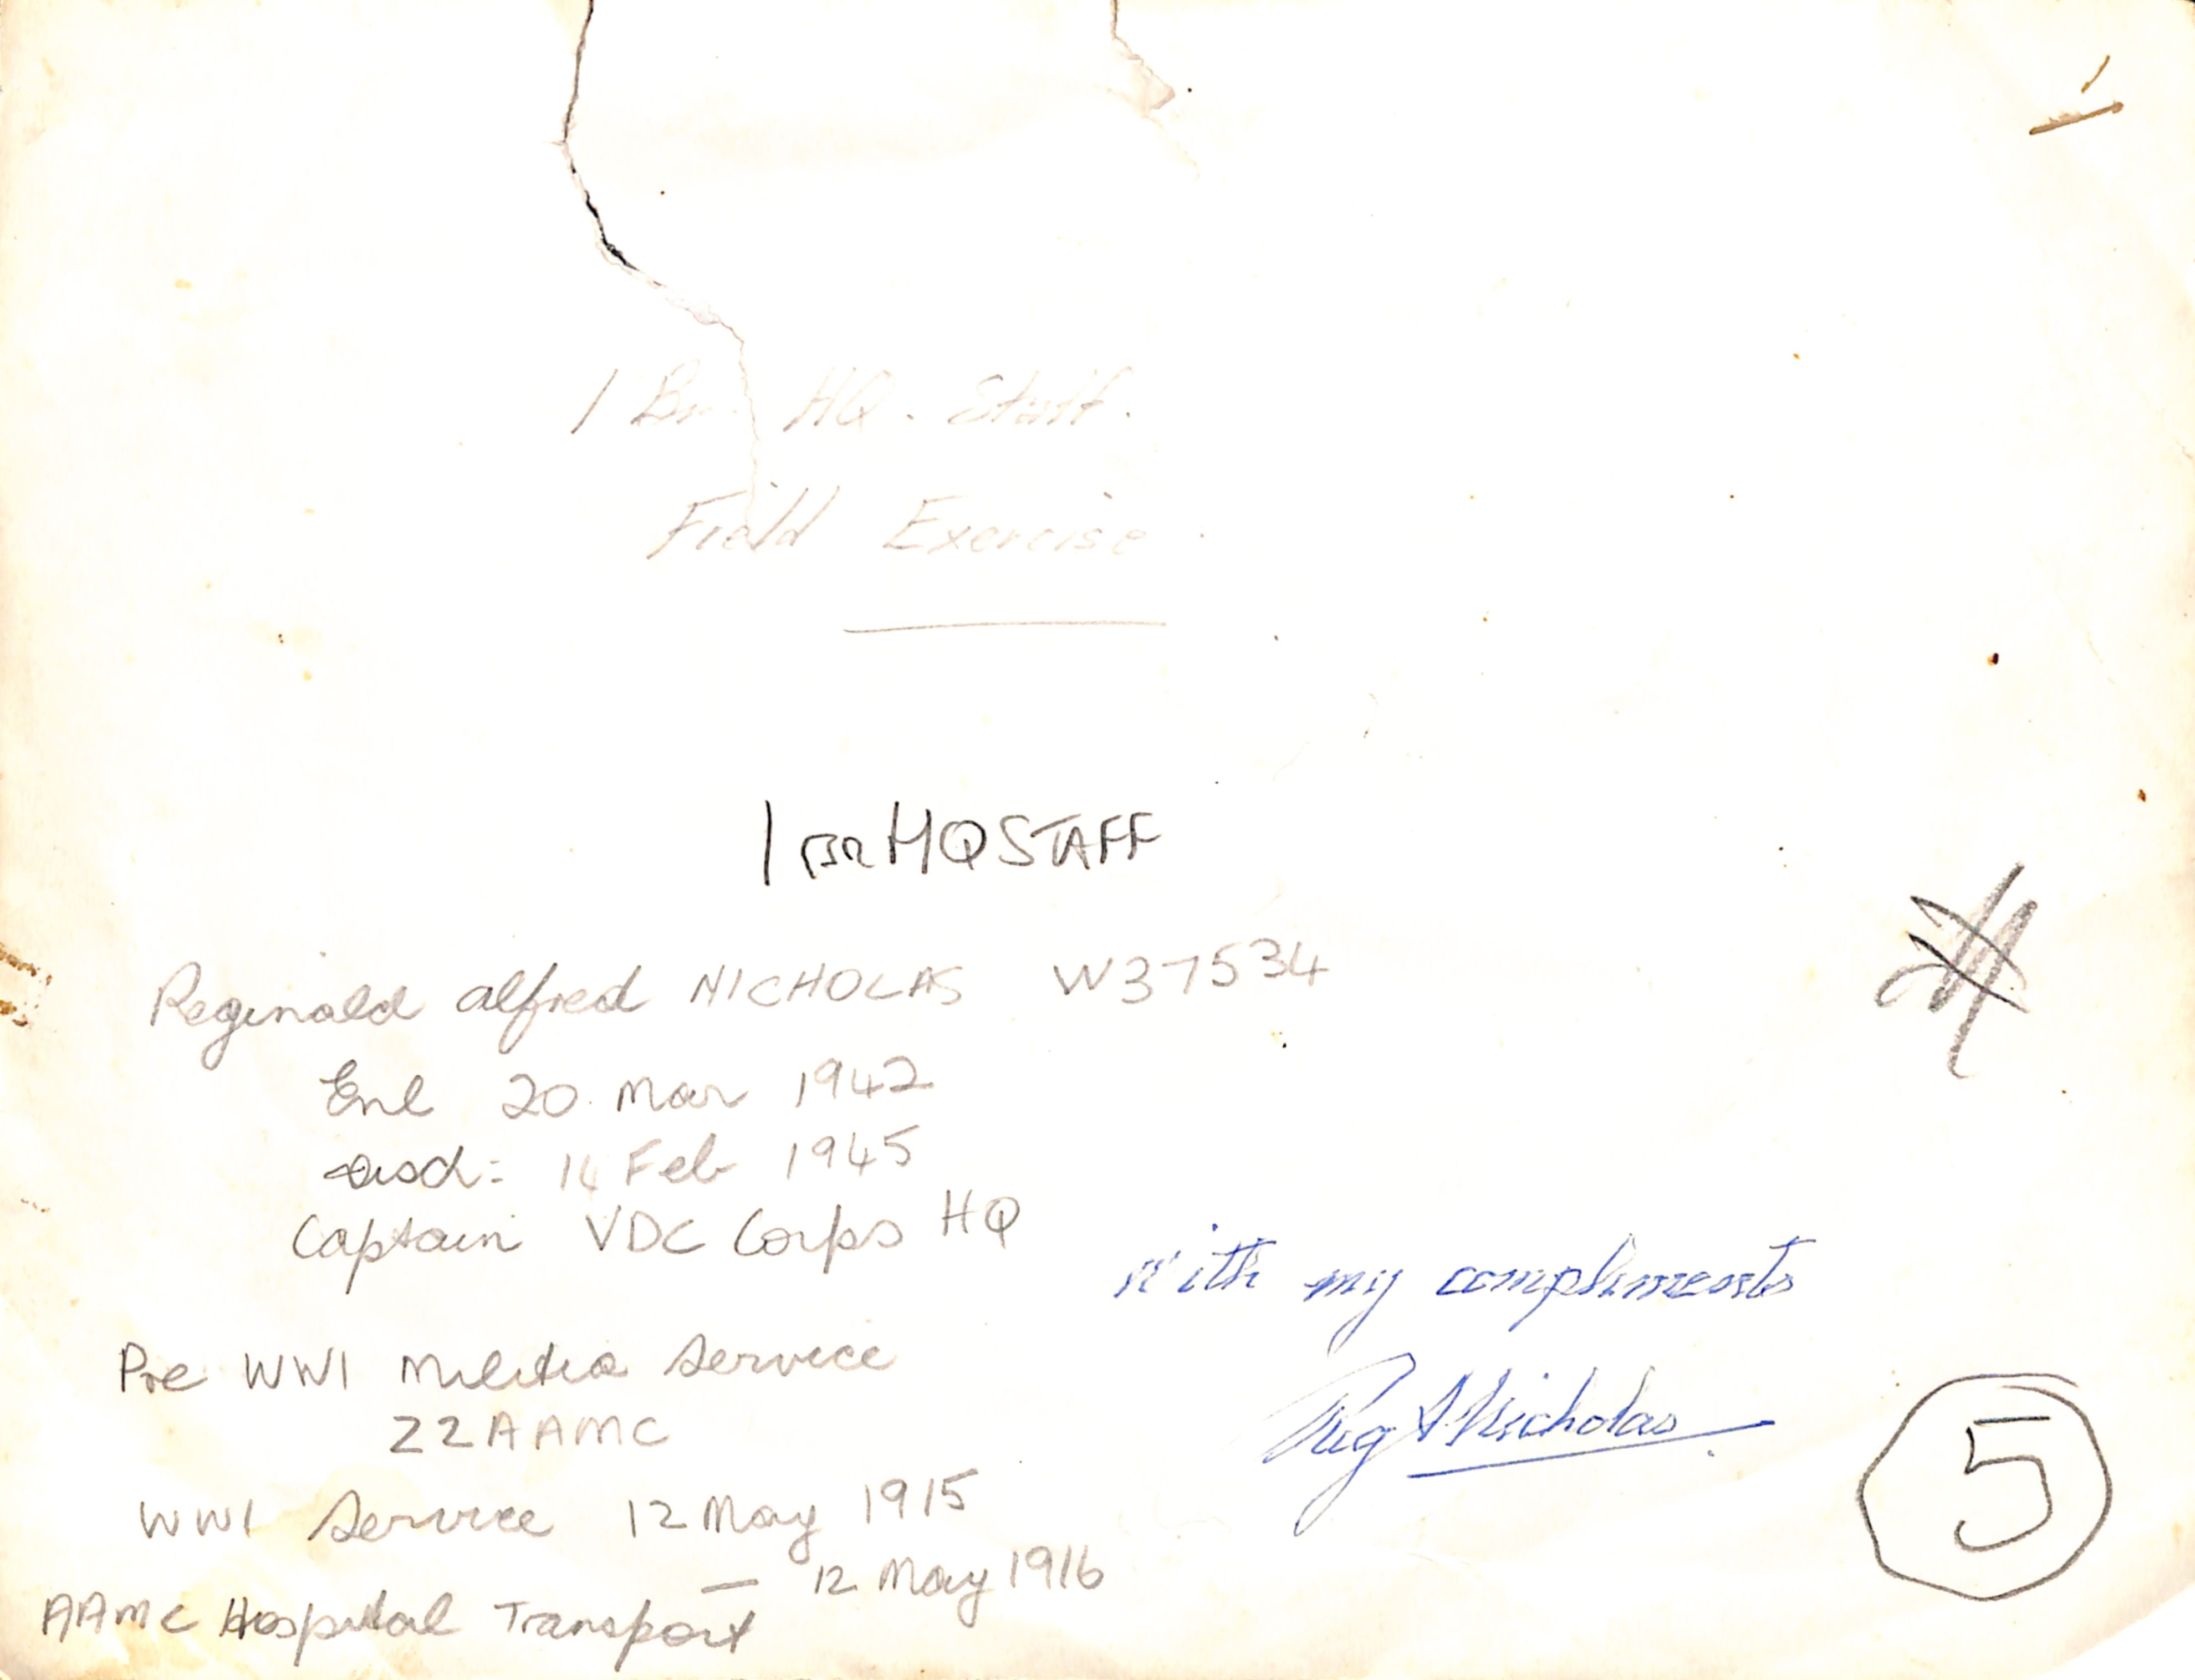 1 Bn HQ. Staff.
Field Exercise
1 Bn HQ STAFF
Reginald Alfred NICHOLAS W37534
Enl 20 Mar 1942
Disd: 14 Feb 1945
Captain VDC Corps HQ
with my compliments
Pre WW1 Militia Service
Reg A Nicholas
22 AAMC
5
WW1 Service 12 May 1915
— 12 May 1916
AAMC Hospital Transport